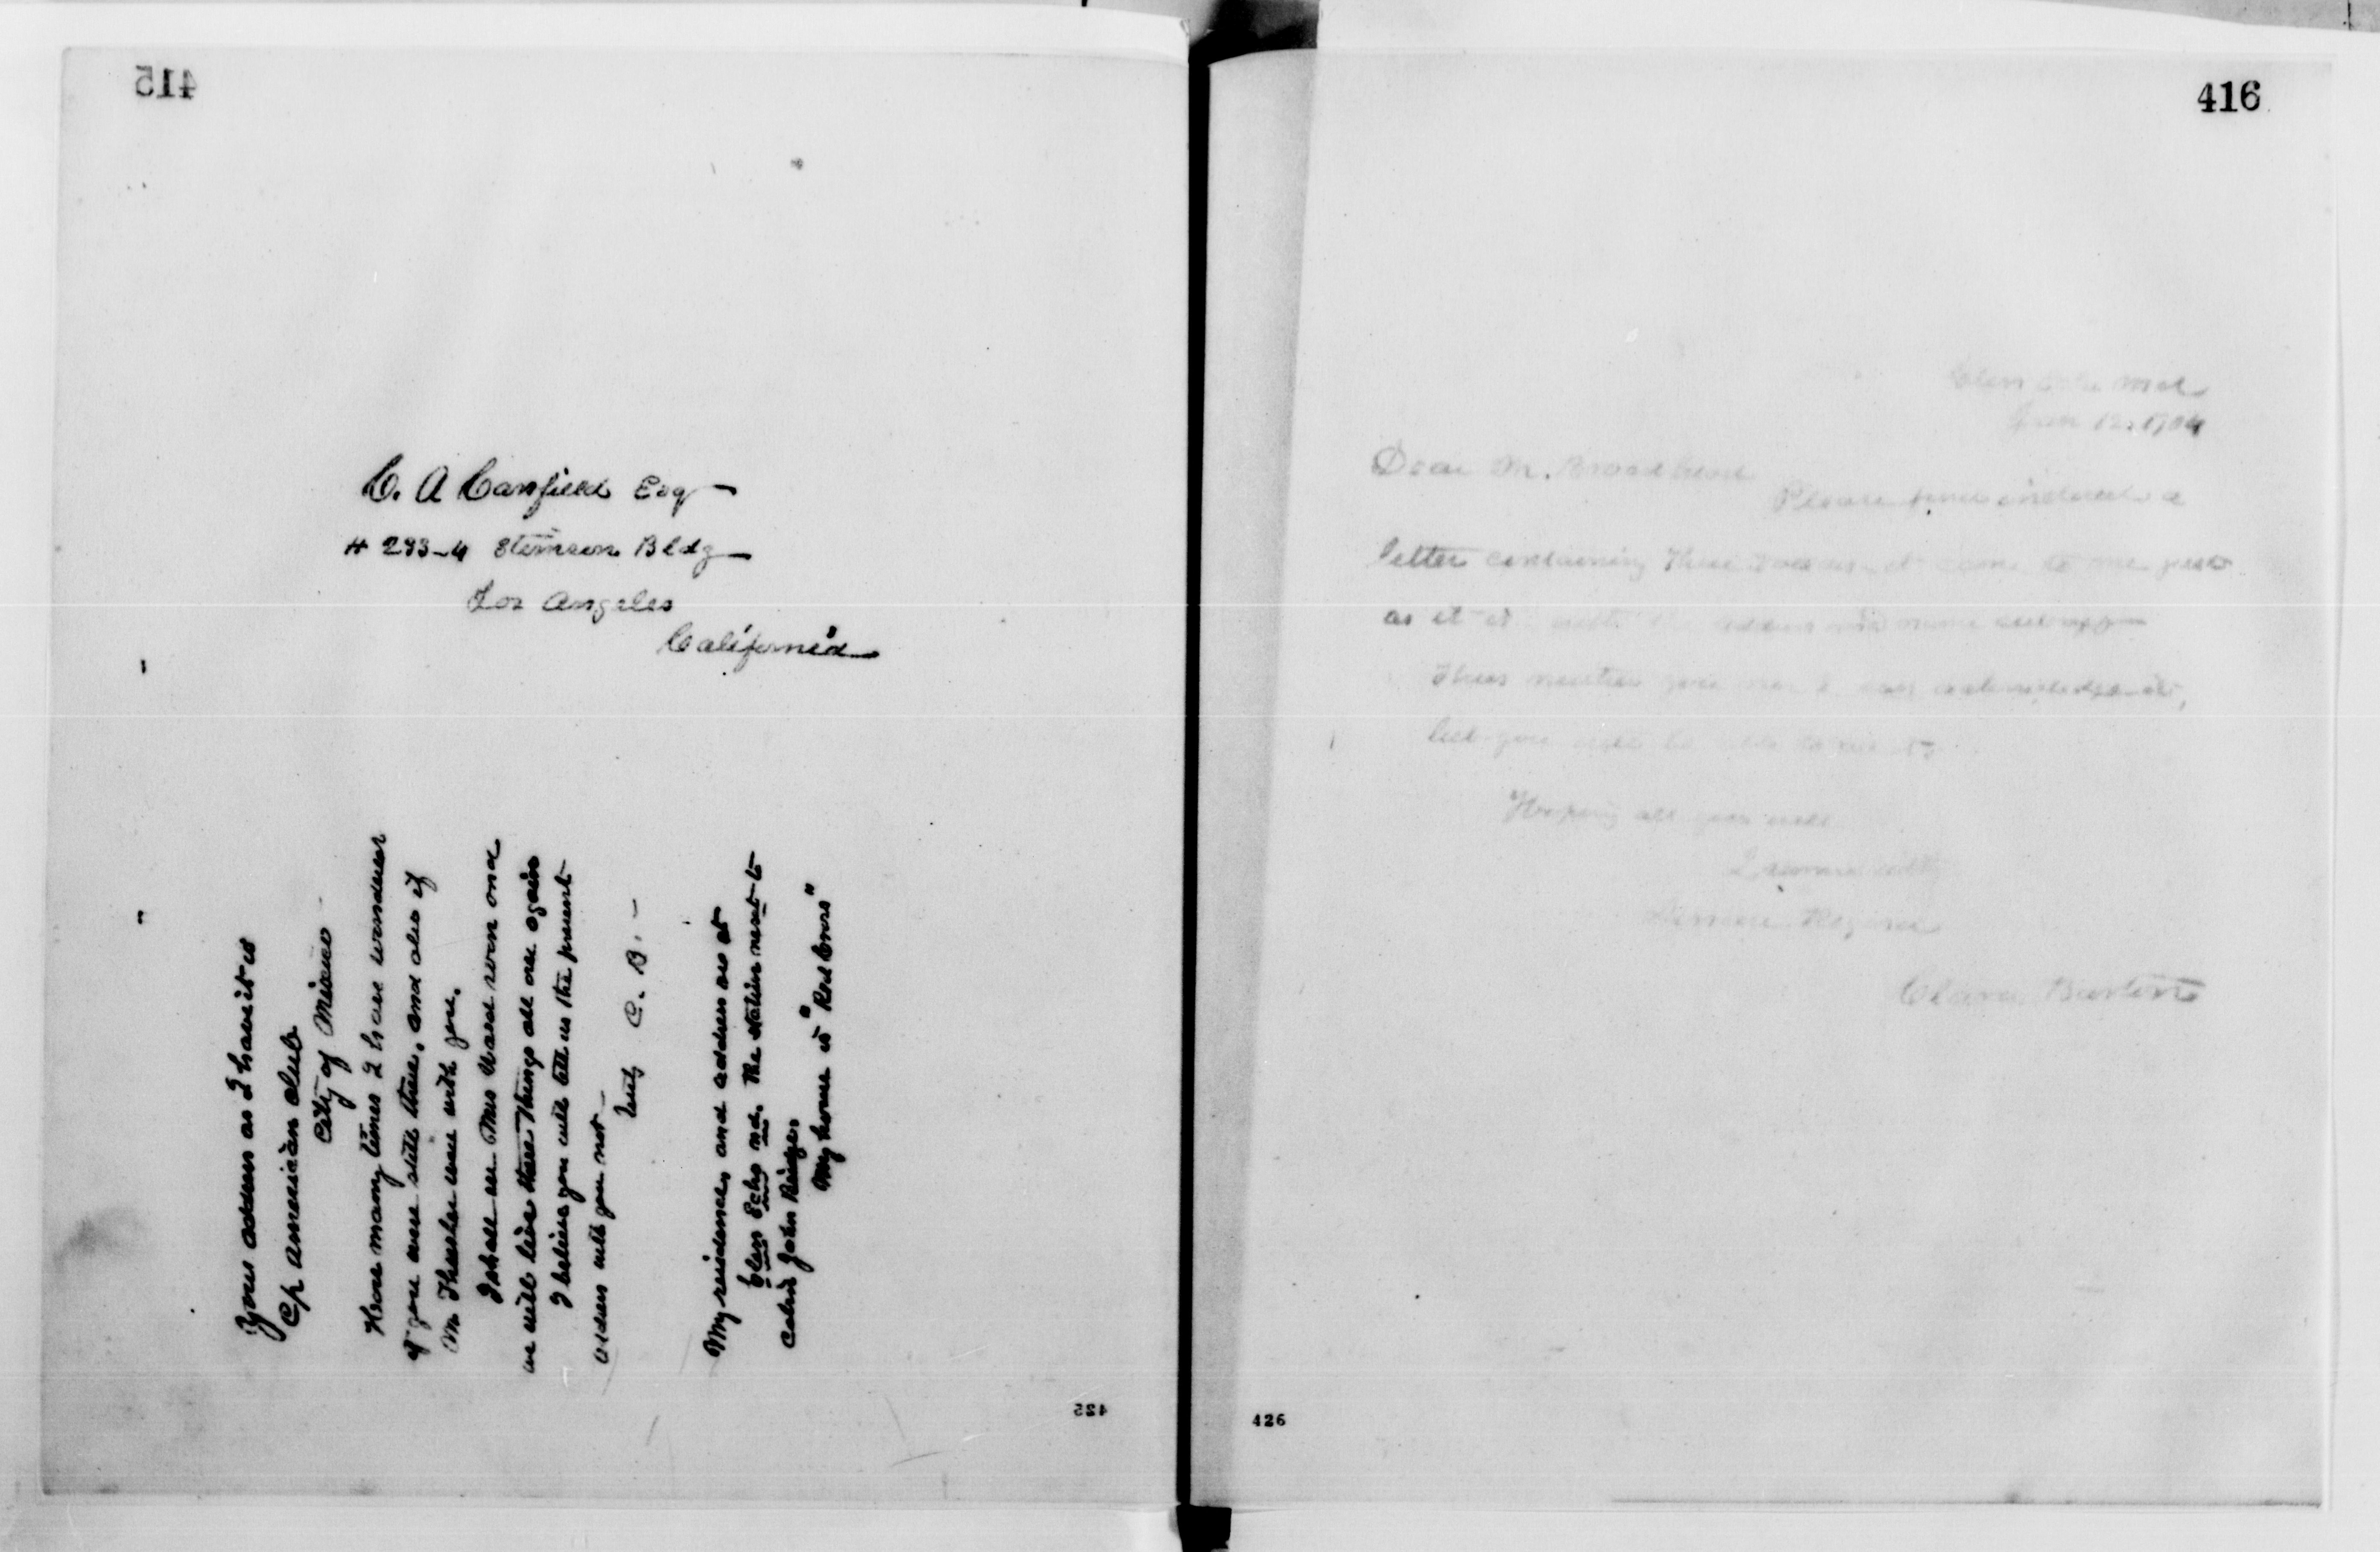 415
C. A Canfield Esq
# 293-4 Stimson Bldg
Los Angeles
California
Your address as I have it is
C/o American Club
City of Mexico
How many times I have wondered
if you were still there, and also if
Mr Thurston were with you.
I shall see Mrs Ward soon and
we will live these things all over again
I believe you will tell us the present
orders will you not
C. B. -
My residence, and address are at
Glen Echo Md. The station next to
Cabin John Bridge,
My home is "Red Cross"
425
416
Glen Echo Md
Jan 12. 1904
Dear Mr. Broadhead
Please find enclosed a
letter containing three dollars it came to me just
as it is with
Thus neither you nor I can acknowledge it,
but you will be able to use it
Hoping all goes well
I remain
Clara Barton
426